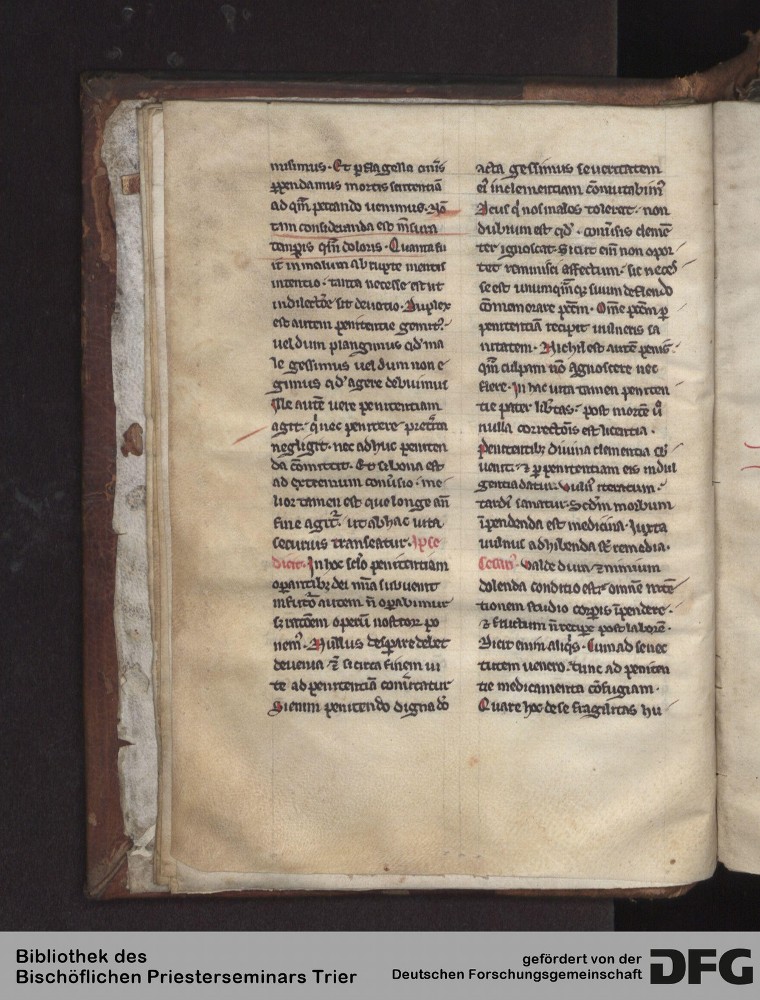 misimus. Et ꝑ flagella om̅s
ꝑpendamus mortis sententiā
ad qm̅ peccando uenimus. Nō
tm̅ consideranda est m̅sura
tempis qm̅ doloris. Quanta fu
it in malum abrupte mentis
intentio. tanta necesse est ut
in dilectōe sit deuotio. Duplex
est autem penitentie gemit9.
uel dum plangimus qd' ma
le gessimus uel dum non e
gimus qd' agere debuimus
Ille autē uere penitentiam
agit. q̇ nec penitere preterita
negligit. nec adhuc peniten
da cōmittit. Et si bona est
ad extremum conuersio. me
lior tamen est que longe an̄
fine agit̄. ut ab hac uita
securius transeatur. Ipse
dicit. In hoc sclo penitentiam
oꝑantibꝫ dei mīa subuenit
in futuro autem n̄ oꝑabimur
sꝫ rationem operū nostrorꝫ po
nem9. Nullus desperare debet
de uenia ⁊ si circa finem ui
te ad penitentiā conuertatur
Si enim penitendo digna do
acta gessimus seueritatem
ei9 in clementiam cōmutabim9
Deus q̇ nos malos tolerat. non
dubium est qd'. conuersis clemē
ter ignoscat. Sicut eni̅ non opor
tet reminisci affectum. sic necesse
se est unumquēqꝫ suum deflendo
cōmemorare pctm̅. Om̅e pctm̅ ꝑ
penitentiā recipit uulneris sa
nitatem. Nichil est autē peius.
qm̅ culpam nō agnoscere nec
flere. In hac uita tamen peniten
tie patet lib̄tas. post mortē ů
nulla correctōis est licentia.
Penitentibꝫ diuina clementia sb̄
uenit. ⁊ ꝑ penitentiam eis indul
gentia datur. uuln9 iteratum.
tardi9 sanatur. Scdm̅ morbum
īpendenda est medicina. Iuxta
uulnus adhibenda st̄ remedia.
Valde dura ⁊ nimium
dolenda conditio est. omnē intē
tionem studio corꝑis īpendere.
⁊ fructum n̄ recipe post laborē.
Dicit enim aliq̇s. Cum ad senec
tutem uenero. tunc ad peniten
tie medicamenta cōfugiam.
Quare hoc de se fragilitas hu
Bibliothek des
Bischöflichen Priesterseminars Trier
gefördert von der
Deutschen Forschungsgemeinschaft
DFG